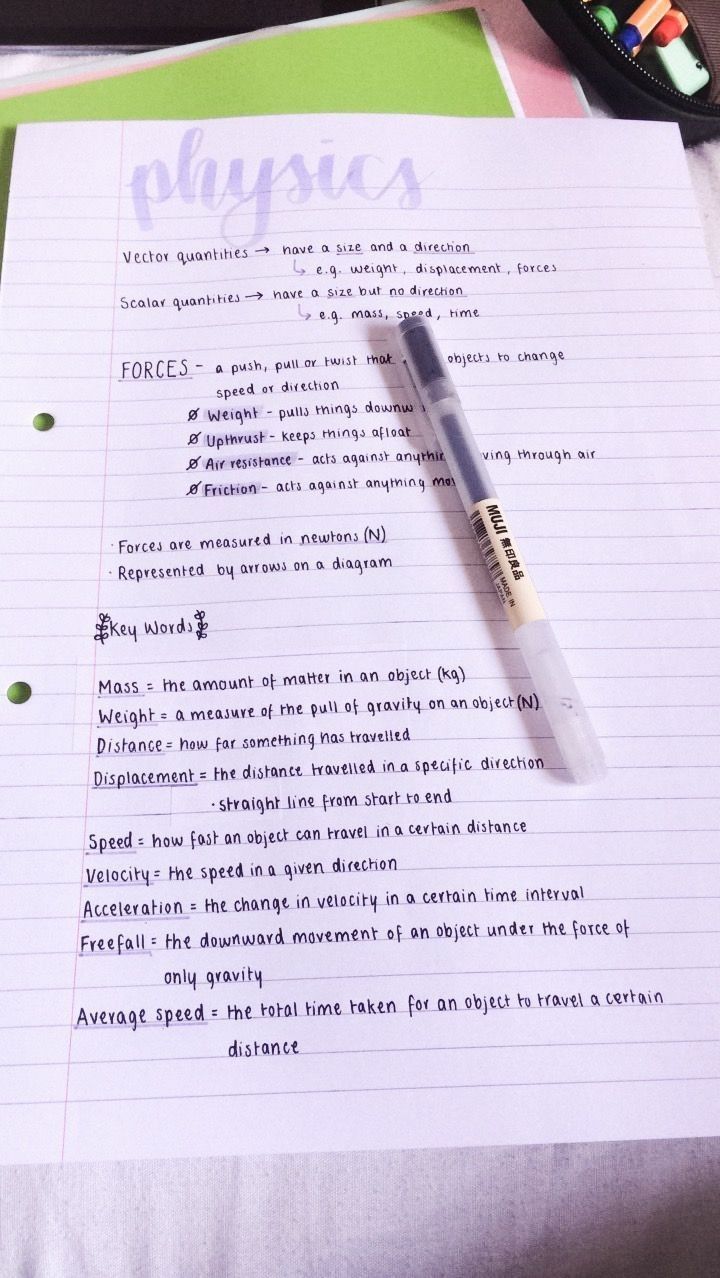 physics
Vector quantities → have a size and a direction
↳ e.g. weight, displacement, forces
Scalar quantities → have a size but no direction
↳ e.g. mass, speed, time
FORCES - a push, pull or twist that objects to change
speed or direction
Weight - pulls things
Upthrust - keeps things afloat
Air resistance - acts against through air
Friction - acts against anything
· Forces are measured in newtons (N)
· Represented by arrows on a diagram
Key Words
Mass = the amount of matter in an object (kg)
Weight = a measure of the pull of gravity on an object (N)
Distance = how far something has travelled
Displacement = the distance travelled in a specific direction
· straight line from start to end
Speed = how fast an object can travel in a certain distance
Velocity = the speed in a given direction
Acceleration = the change in velocity in a certain time interval
Freefall = the downward movement of an object under the force of
only gravity
Average speed = the total time taken for an object to travel a certain
distance
MUJI 無印良品
MADE IN
JAPAN